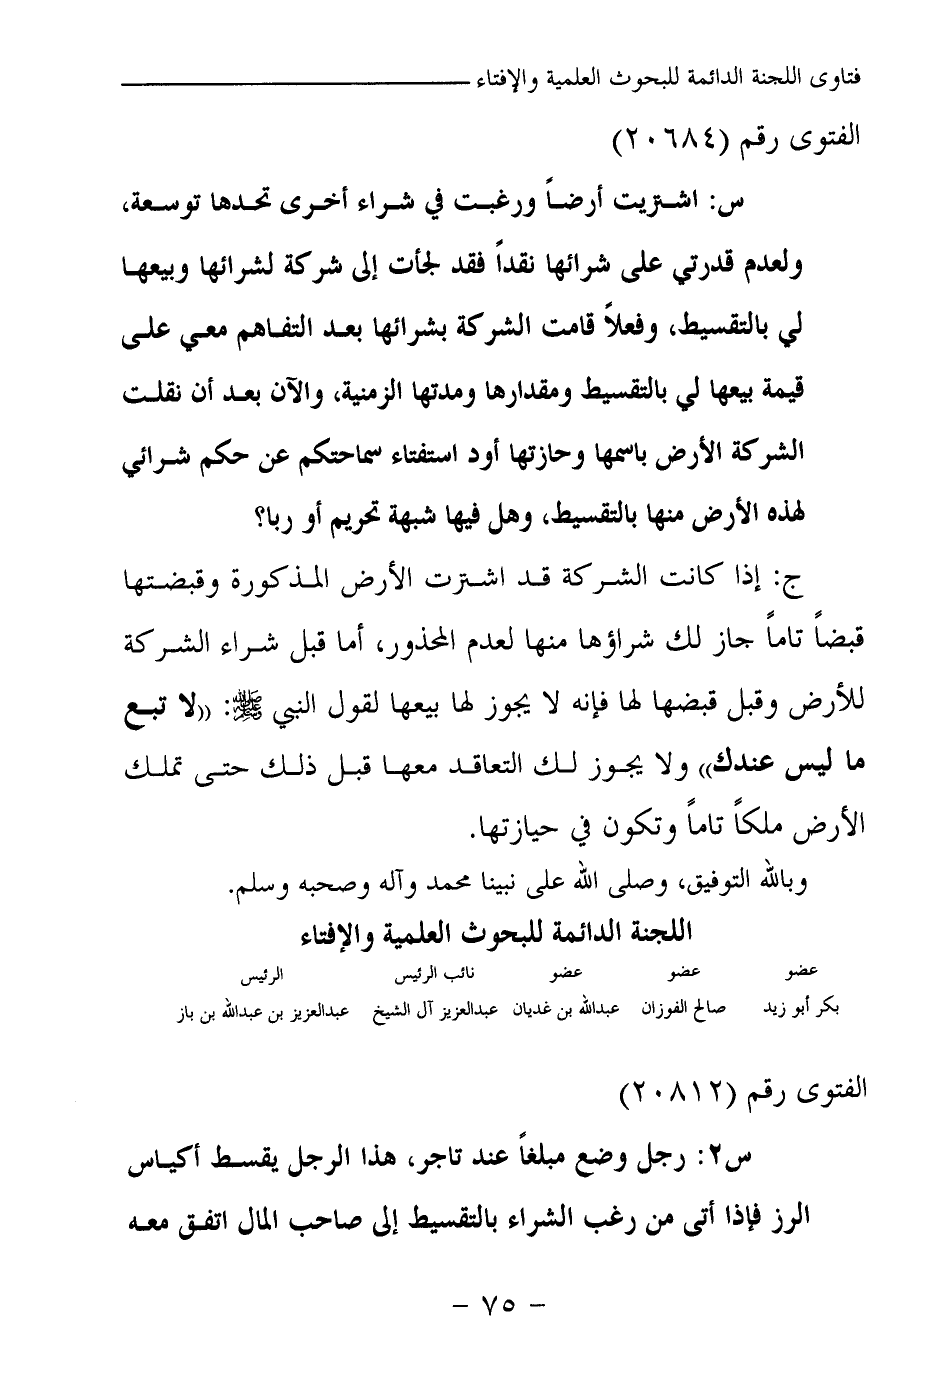 فتاوى اللجنة الدائمة للبحوث العلمية والإفتاء
الفتوى رقم (٢٠٦٨٤)
س: اشتريت أرضاً ورغبت في شراء أخرى تحدها توسعة،
ولعدم قدرتي على شرائها نقداً فقد لجأت إلى شركة لشرائها وبيعها
لي بالتقسيط، وفعلاً قامت الشركة بشرائها بعد التفاهم معي على
قيمة بيعها لي بالتقسيط ومقدارها ومدتها الزمنية، والآن بعد أن نقلت
الشركة الأرض باسمها وحازتها أود استفتاء سماحتكم عن حكم شرائي
لهذه الأرض منها بالتقسيط، وهل فيها شبهة تحريم أو ربا؟
ج: إذا كانت الشركة قد اشترت الأرض المذكورة وقبضتها
قبضاً تاماً جاز لك شراؤها منها لعدم المحذور، أما قبل شراء الشركة
للأرض وقبل قبضها لها فإنه لا يجوز لها بيعها لقول النبي ﷺ: ((لا تبع
ما ليس عندك)) ولا يجوز لك التعاقد معها قبل ذلك حتى تملك
الأرض ملكاً تاماً وتكون في حيازتها.
وبالله التوفيق، وصلى الله على نبينا محمد وآله وصحبه وسلم.
اللجنة الدائمة للبحوث العلمية والإفتاء
عضو عضو عضو نائب الرئيس الرئيس
بكر أبو زيد صالح الفوزان عبدالله بن غديان عبدالعزيز آل الشيخ عبدالعزيز بن عبدالله بن باز
الفتوى رقم (٢٠٨١٢)
س٢: رجل وضع مبلغاً عند تاجر، هذا الرجل يقسط أكياس
الرز فإذا أتى من رغب الشراء بالتقسيط إلى صاحب المال اتفق معه
- ٧٥ -